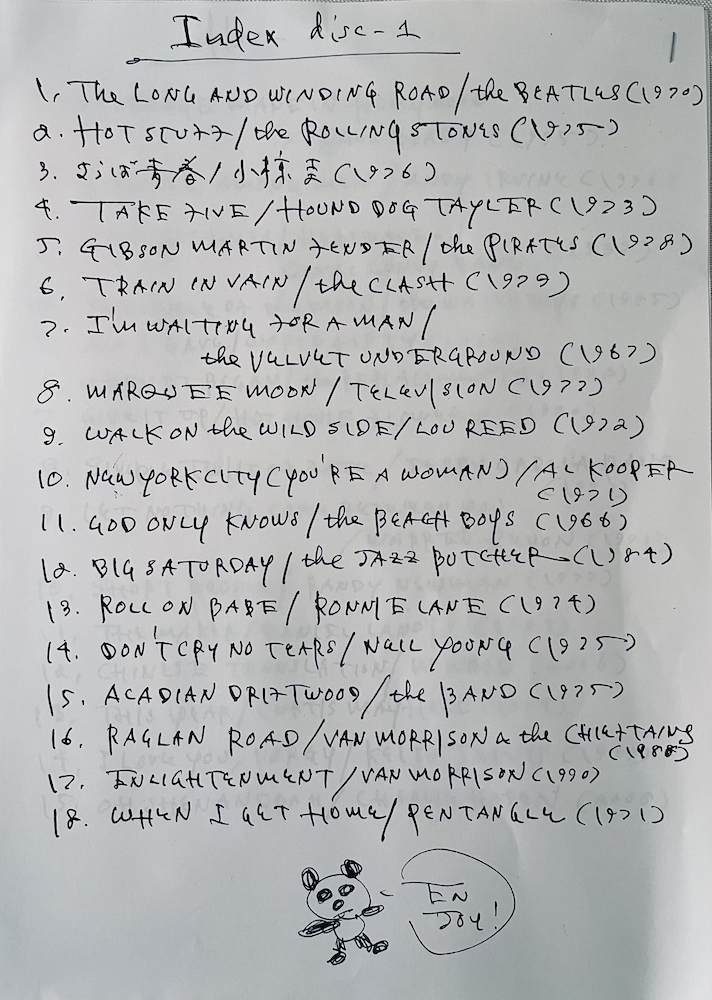 Index disc-1
1
1. The LONG AND WINDING ROAD/the BEATLES(1970)
2. HOT STUFF/the ROLLING STONES(1975)
3. さらば青春/小椋圭(1976)
4. TAKE FIVE/HOUND DOG TAYLER(1973)
5. GIBSON MARTIN FENDER/the PIRATES(1978)
6. TRAIN IN VAIN/the CLASH(1979)
7. I'M WAITING FOR A MAN/
the VELVET UNDERGROUND(1967)
8. MARQUEE MOON/TELEVISION(1977)
9. WALK ON the WILD SIDE/LOU REED(1972)
10. NEW YORK CITY(YOU'RE A WOMAN)/AL KOOPER
(1971)
11. GOD ONLY KNOWS/the BEACH BOYS(1966)
12. BIG SATURDAY/the JAZZ BUTCHER(1984)
13. ROLL ON BABE/RONNIE LANE(1974)
14. DON'T CRY NO TEARS/NEIL YOUNG(1975)
15. ACADIAN DRIFTWOOD/the BAND(1975)
16. RAGLAN ROAD/VAN MORRISON & the CHIEFTAINS
(1988)
17. ENLIGHTENMENT/VAN MORRISON(1990)
18. WHEN I GET HOME/PENTANGLE(1971)
EN
JOY!